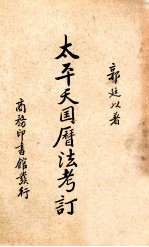 郭廷以著
太平天国曆法考訂
商務印書館發行